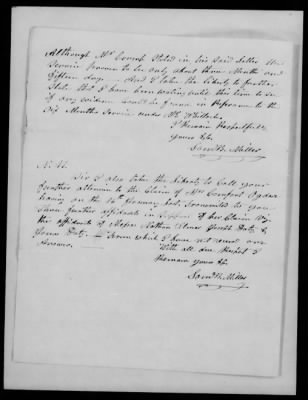 Although Mr Cornish Stated in his said Letter the
Service proven to be only about three Months and
fifteen days. And I take the liberty to further
State that I have been waiting until this time to see
if any evidence could be found in Reference to the
Six Months Service under
I Remain Respectfully
Yours &c.
Saml. Miller
N.B. Sir I also take the Liberty to Call your
further attention to the Claim of Mrs Comfort Ogden
having on the 14th January last, transmitted to you
Some further affidavits in Support of her Claim Viz
the affidavits of Nathan Elmer Joseph &
Jonas from which I have not received any
Answer. With all due Respect I
Remain Yours &c.
Saml. Miller